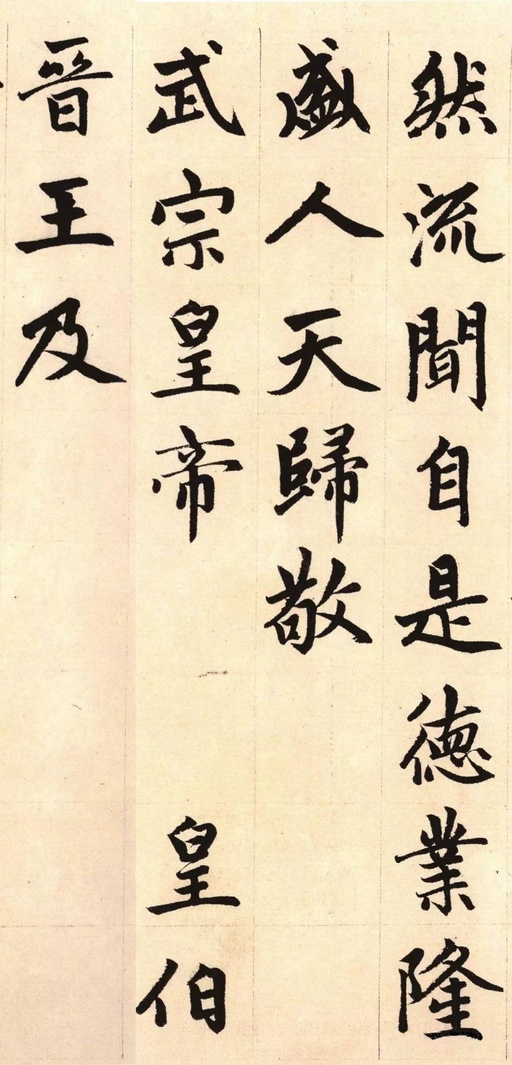 然流聞自是德業隆
盛人天歸敬
武宗皇帝 皇伯
晉王及